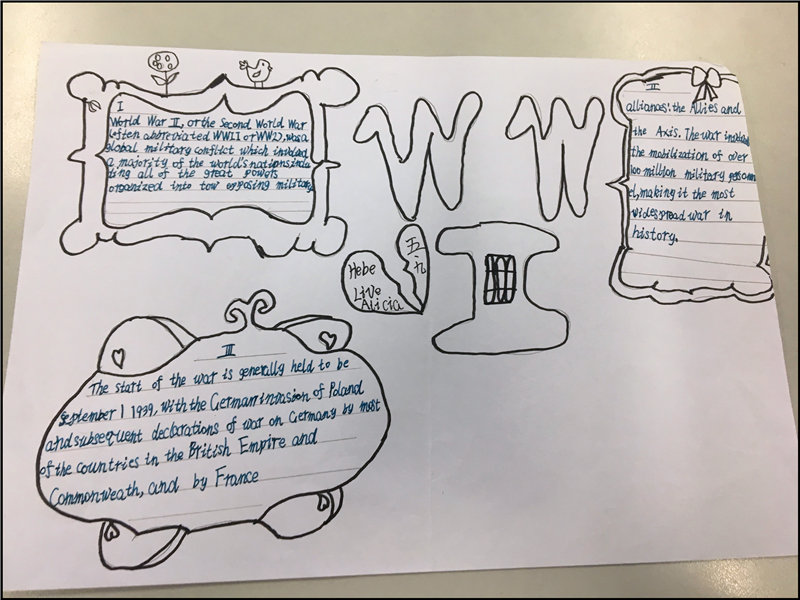 I
World War II, or the Second World War
(often abbreviated WWII or WW2), was a
global military conflict which involved
a majority of the world's nations, inclu
ding all of the great powers
organized into tow opposing military
W W
I
Hebe
Live
Alicia
五.九
II
alliances: the Allies and
the Axis. The war involved
the mobilization of over
100 million military personn
el, making it the most
widespread war in
history.
III
The start of the war is generally held to be
September 1 1939, with the German invasion of Poland
and subsequent declarations of war on Germany by most
of the countries in the British Empire and
Commonweath, and by France